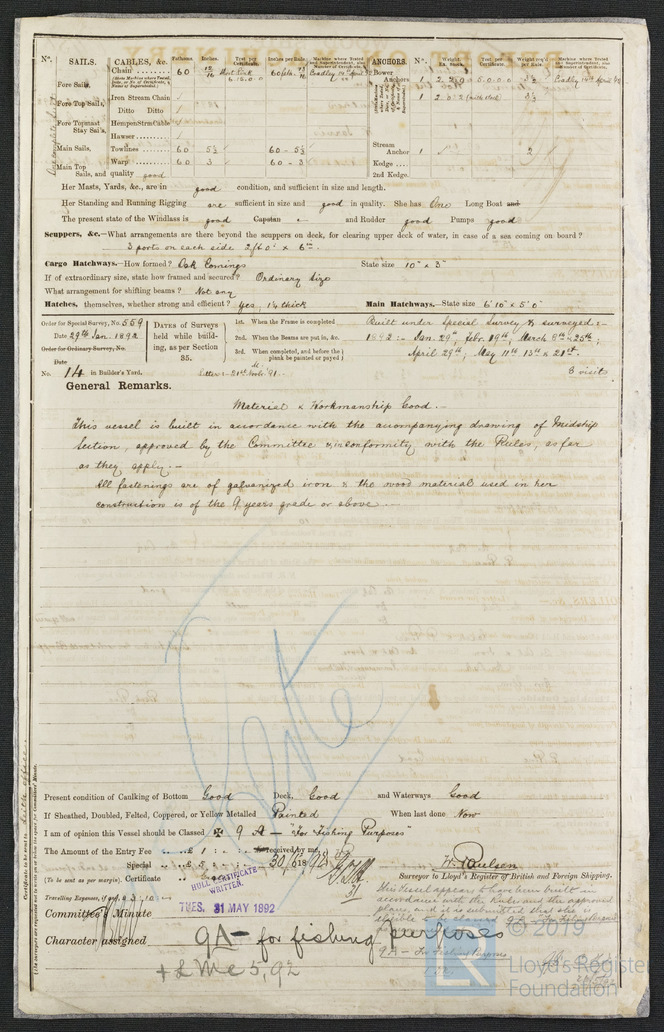 Nº. SAILS. CABLES, &c. Fathoms. Inches. Test per Certificate. Inches per Rule. ANCHORS. Nº. Weight. Ex. Stock. Test per Certificate. Weight req'd per Rule.
Chain 60 12/16 60 Bower
Fore Sails, Anchors 1
Iron Stream Chain 1
Fore Top Sails, Ditto Ditto
Fore Topmast Stay Sails, Hempen Strm Cable
Hawser Stream
Main Sails, Towlines 60 5½ 60 - 5½ Anchor 1
Main Top Warp 60 3 60 - 3 Kedge
Sails, and quality good 2nd Kedge.
Her Masts, Yards, &c., are in good condition, and sufficient in size and length.
Her Standing and Running Rigging are sufficient in size and good in quality. She has One Long Boat and
The present state of the Windlass is good Capstan and Rudder good Pumps good
Scuppers, &c.—What arrangements are there beyond the scuppers on deck, for clearing upper deck of water, in case of a sea coming on board?
3 ports on each side 2ft 0" x 6in.
Cargo Hatchways.—How formed? Oak Comings State size 10" x 3"
If of extraordinary size, state how framed and secured? Ordinary size
What arrangement for shifting beams? Not any
Hatches, themselves, whether strong and efficient? Yes, 1¼ thick Main Hatchways.—State size 6'10" x 5'0"
Order for Special Survey, No. 559
Date 29th Jan. 1892
Order for Ordinary Survey, No.
Date
No. 14 in Builder's Yard.
DATES of Surveys held while building, as per Section 35.
1st. When the Frame is completed
2nd. When the Beams are put in, &c.
3rd. When completed, and before the plank be painted or payed
Letter :- 21st Novr. '91
Built under Special Survey & surveyed :-
1892 :- Jan. 29th, Feb. 19th, March 8th & 25th;
April 29th; May 11th 13th & 21st.
8 visits
General Remarks.
Material & Workmanship Good.
This vessel is built in accordance with the accompanying drawing of Midship
Section, approved by the Committee & in conformity with the Rules, as far
as they apply.—
All fastenings are of galvanized iron & the wood material used in her
construction is of the 9 years grade or above.
Present condition of Caulking of Bottom Good Deck, Good and Waterways Good
If Sheathed, Doubled, Felted, Coppered, or Yellow Metalled Painted When last done Now
I am of opinion this Vessel should be Classed ✠ 9 A — "For Fishing Purposes"
The Amount of the Entry Fee £ 1 : received by me,
Special £ 5 30/5/1892
(To be sent as per margin). Certificate
H. Paulsen
Surveyor to Lloyd's Register of British and Foreign Shipping.
HULL CERTIFICATE WRITTEN.
Travelling Expenses, if any, £ 3. 10
TUES. 31 MAY 1892
Committee's Minute
This Vessel appears to have been built in
accordance with the Rules and the approved
plans, and it is submitted that she is
eligible to be classed 9A - For Fishing Purposes
Character assigned 9A — for fishing purposes
+ LMC 5,92
9A - For Fishing Purposes
© 2019
Lloyd's Register
Foundation